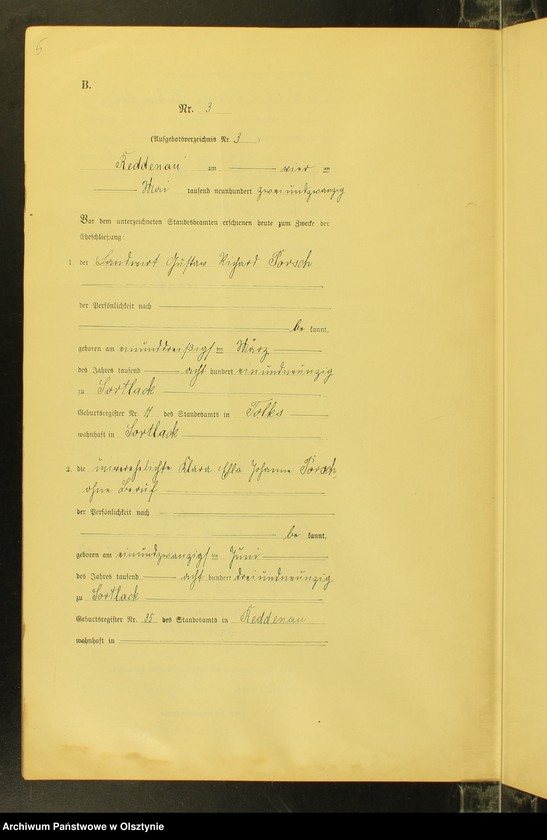 5
B.
Nr. 3
(Aufgebotsverzeichnis Nr. 3)
Reddenau am vier ten
Mai tausend neunhundert zweiundzwanzig
Vor dem unterzeichneten Standesbeamten erschienen heute zum Zwecke der
Eheschließung:
1. der Landwirt Gustav Richard Porsch
der Persönlichkeit nach
be kannt,
geboren am einunddreißigsten März
des Jahres tausend acht hundert einundneunzig
zu Sortlack
Geburtsregister Nr. 11 des Standesamts in Tolks
wohnhaft in Sortlack
2. die unverehelichte Klara Ella Johanne Porsch
ohne Beruf
der Persönlichkeit nach
be kannt,
geboren am einundzwanzigsten Juni
des Jahres tausend acht hundert dreiundneunzig
zu Sortlack
Geburtsregister Nr. 35 des Standesamts in Reddenau
wohnhaft in
Archiwum Państwowe w Olsztynie